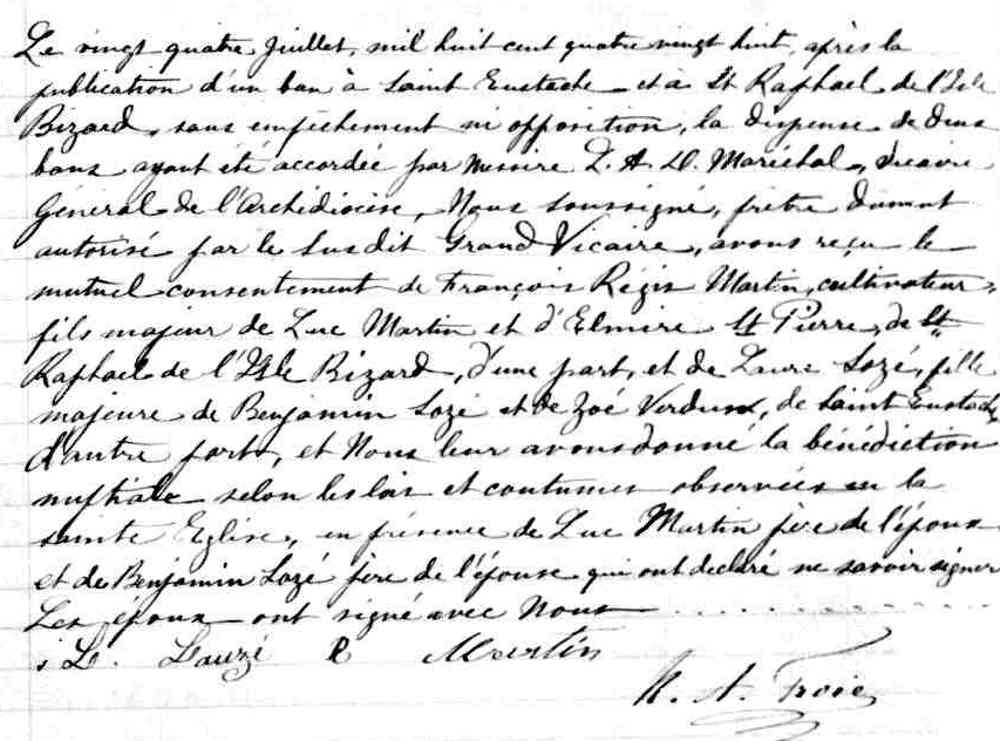 Le vingt quatre Juillet, mil huit cent quatre vingt huit, après la
publication d'un ban à Saint Eustache et à St Raphael de l'Isle
Bizard, sans empêchement ni opposition, la dispense de deux
bans ayant été accordée par Messire L. A. D. Maréchal, Vicaire
Général de l'Archidiocèse, Nous soussigné, prêtre dûment
autorisé par le susdit Grand Vicaire, avons reçu le
mutuel consentement de François Régis Martin, cultivateur,
fils majeur de Luc Martin et d'Elmire St Pierre, de St
Raphael de l'Isle Bizard, d'une part, et de Laure Lozé, fille
majeure de Benjamin Lozé et de Zoé Verdun, de Saint Eustache
d'autre part, et Nous leur avons donné la bénédiction
nuptiale selon les lois et coutumes observées en la
sainte Eglise, en présence de Luc Martin père de l'époux
et de Benjamin Lozé père de l'épouse qui ont declaré ne savoir signer
Les époux ont signé avec Nous
L. Lauzé R Martin